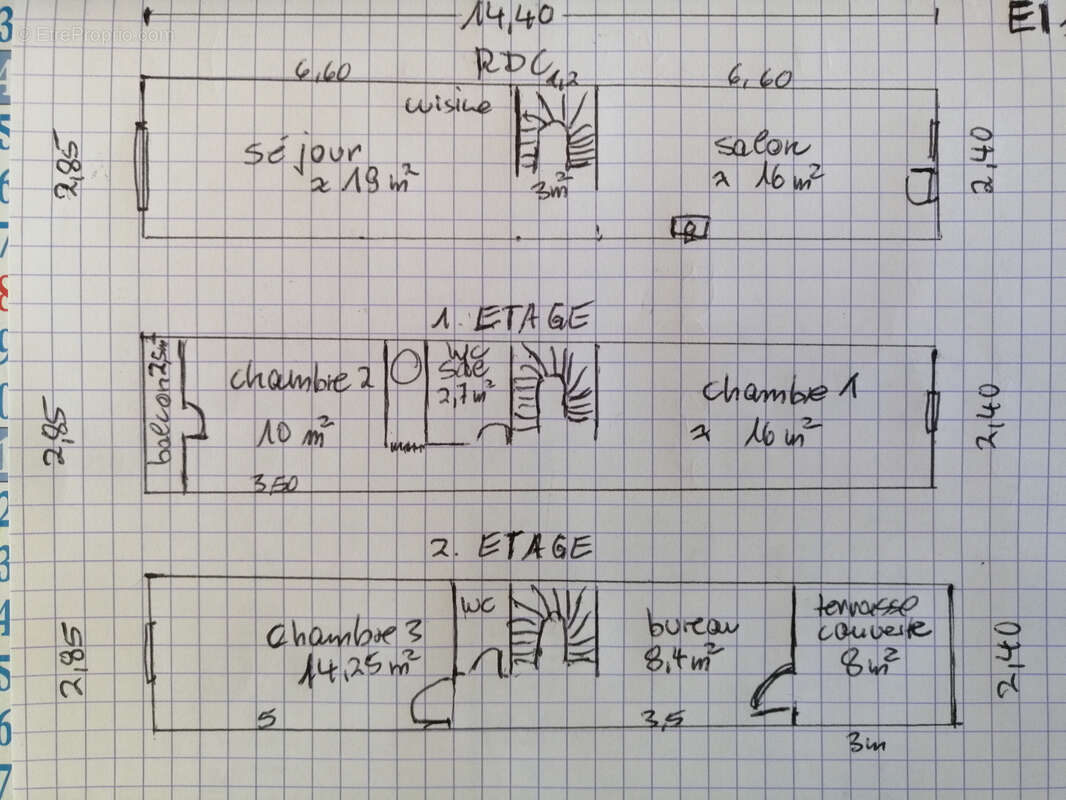 © EtreProprio.com
14,40
EI
RDC
6,60
1,2
6,60
cuisine
2,85
séjour
≈ 19 m²
3m²
salon
≈ 16 m²
2,40
1. ETAGE
balcon 2,5m²
2,85
chambre 2
10 m²
3,50
WC
SdE
2,7m²
chambre 1
≈ 16 m²
2,40
2. ETAGE
2,85
chambre 3
14,25m²
5
WC
bureau
8,4m²
3,5
terrasse
couverte
8m²
3m
2,40